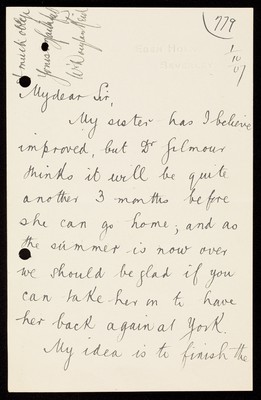 779
1/10/07
& much oblige
Yours faithful
My dear Sir,
My sister has I believe
improved, but Dr Gilmour
thinks it will be quite
another 3 months before
she can go home; and as
the summer is now over
we should be glad if you
can take her on to have
her back again at York.
My idea is to finish the